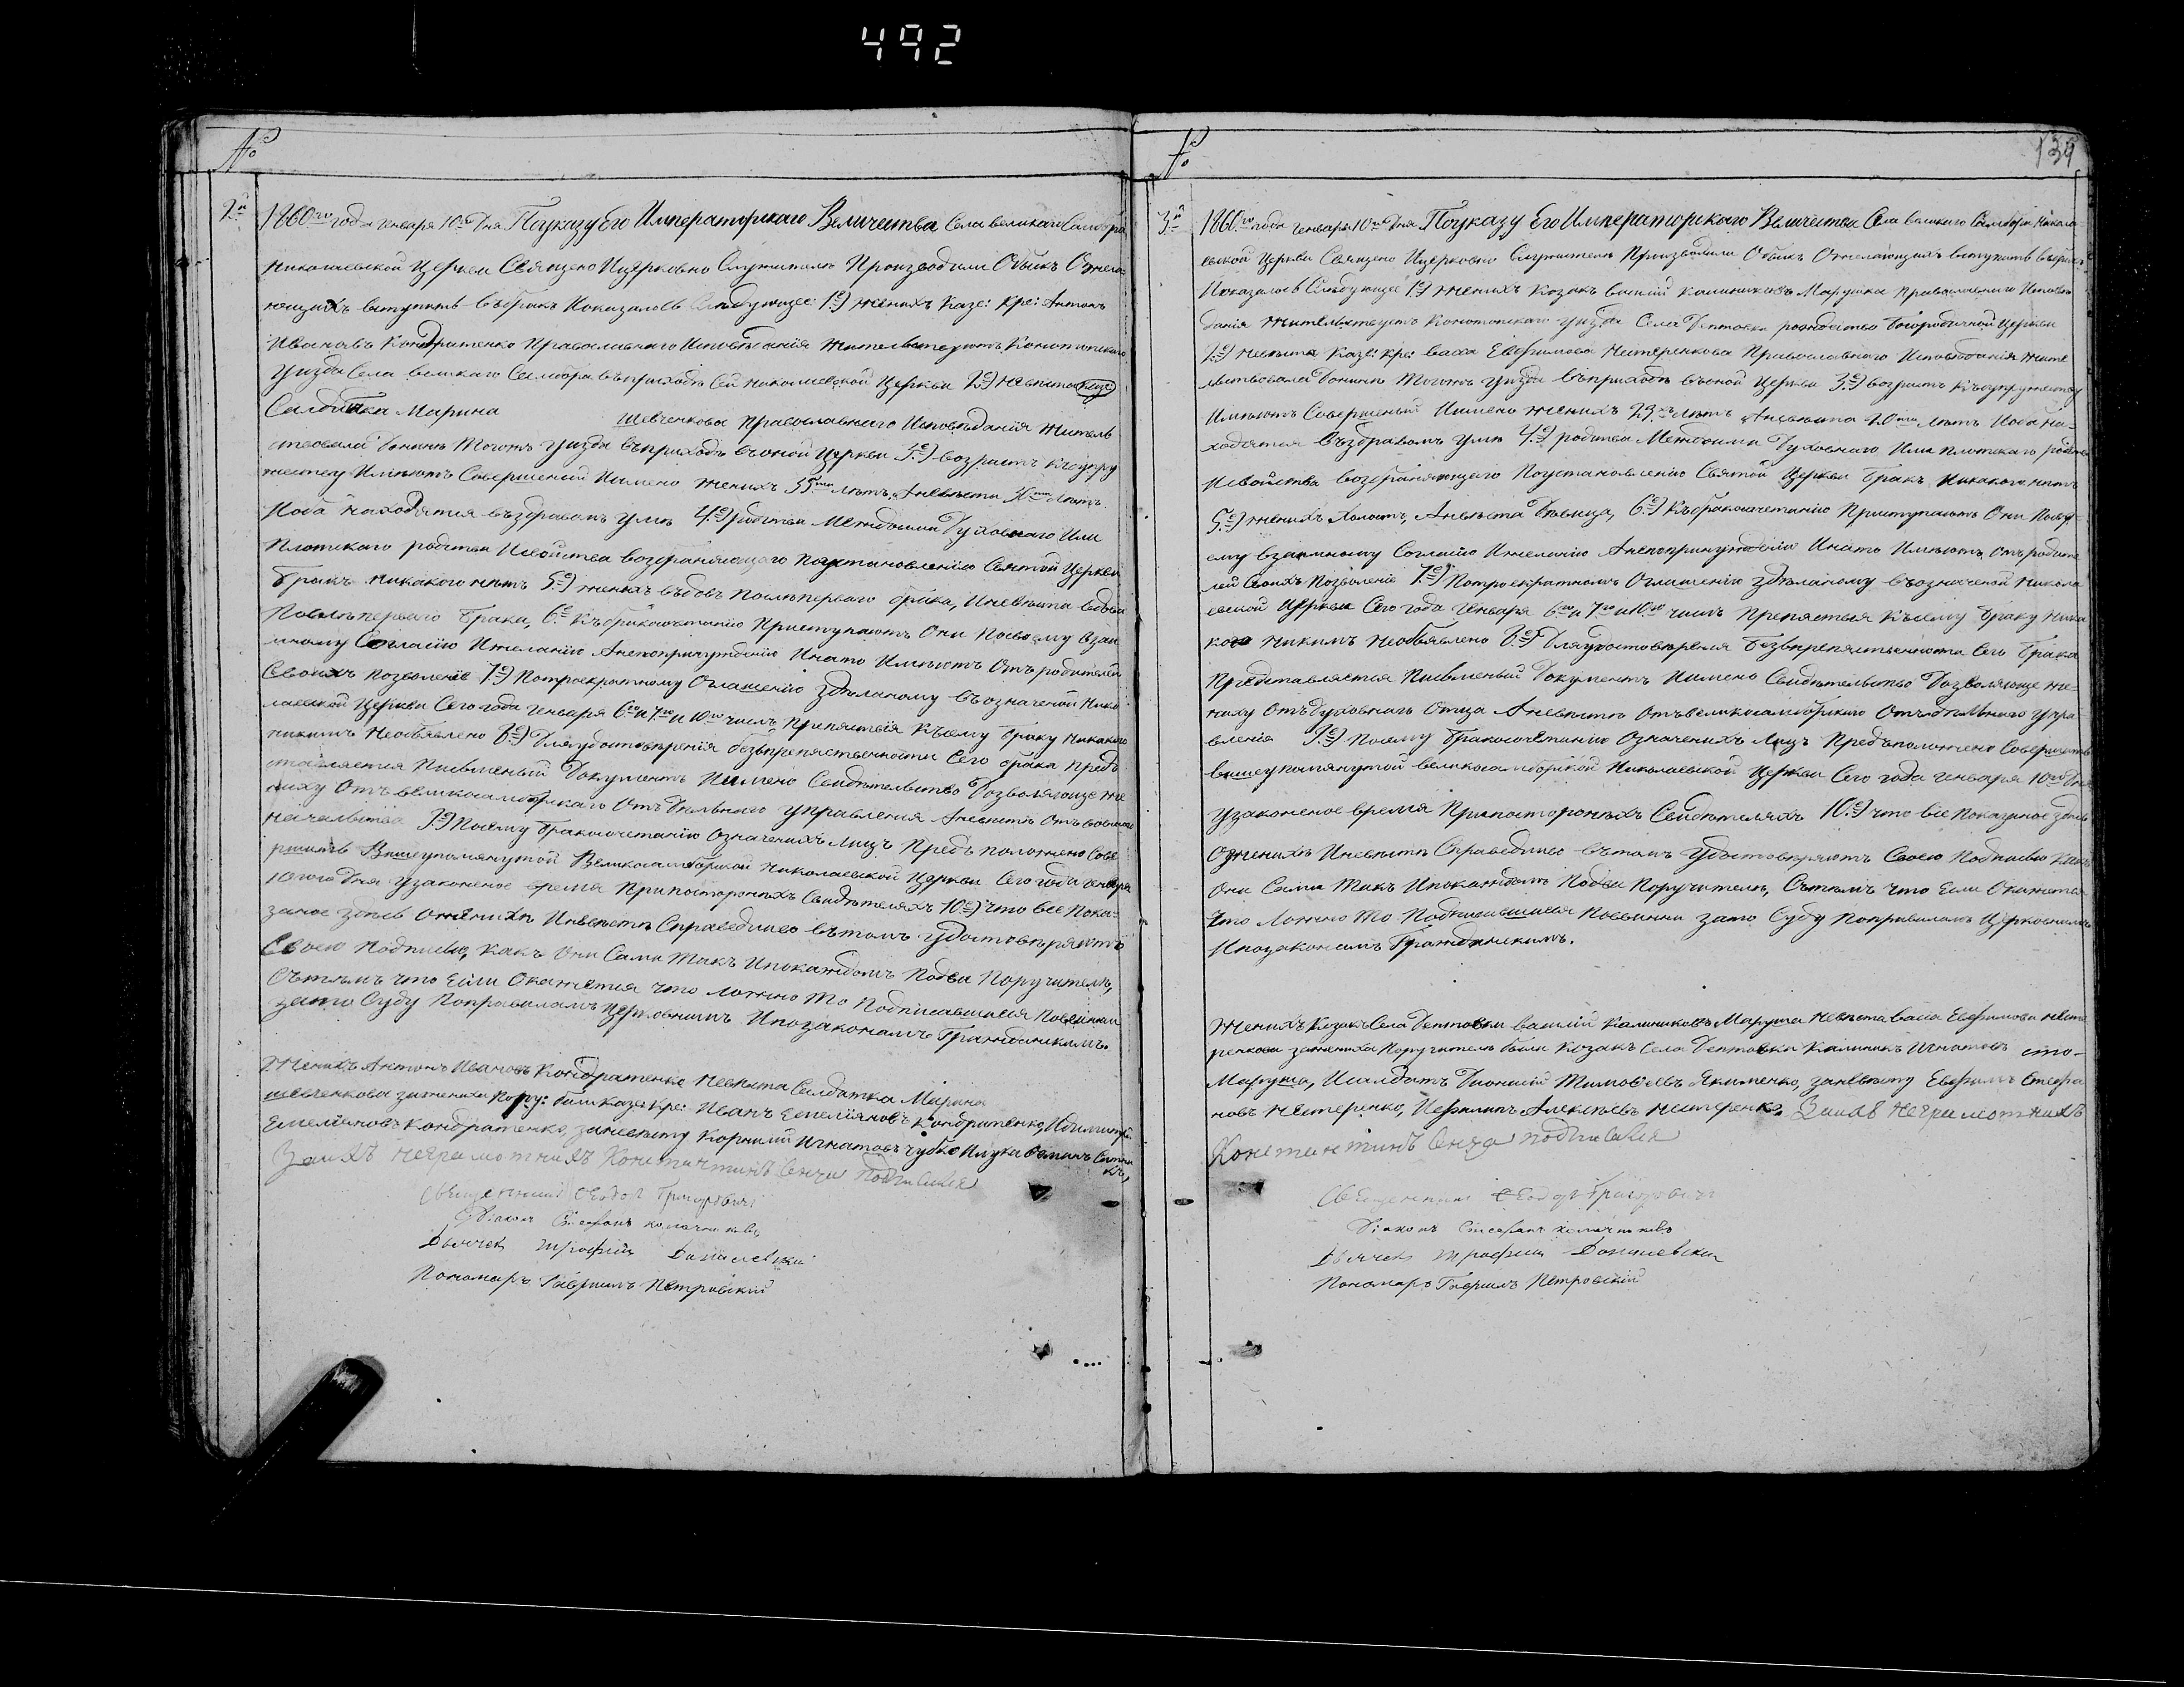 492
№
2й
1860го года Генваря 10го Дня Поуказу Его Императорскаго Величества Села великаго Самбора
Николаевской Церкви Священо Ицерковно Служители Производили Обыкъ Ожела-
ющихъ вступить вбракъ Иоказалось Следующее: 1е) женихъ Казе: кре: Антонъ
Ивановъ Кондратенко Православнаго Исповѣданія жительствуетъ Конотопскаго
Уизда Села великаго Самбора въприходѣ Сей Николаевской Церкви 2е) невѣста
Салдатка Марина Шевченкова Православнаго Исповѣданія Житель
ствовала Донинѣ Тогожъ Уизда въприходѣ въоной Церкви 3е) возрастъ Ксупру
жеству Имѣютъ Совершенный Иимено женихъ 35ти лѣтъ, Аневѣста лѣтъ
Иоба находятся въздравомъ Умѣ 4е) родства Междоими Духовнаго Или
Плотскаго родства Исвойства возбраняющаго Поустановленію Святой Церкви
бракъ никакого нѣтъ 5е) женихъ въдовъ Послѣперваго брака, Иневѣста вдова
Послѣперваго брака, 6е Къбракосочетанію Приступаютъ Они Посвоему взаи
мному Согласію Ижеланію Анепопринужденію Инато Имѣютъ Отъродителей
Своихъ позволеніе 7е) Потроекратному Оглашенію здѣланому въозначеной Нико
лаевской Церкви Сего года Генваря 6го и 7го и 10го числъ Препяствія Къему браку Никакого
никимъ Необявлено 8е) Дляудостовѣренія безъпрепяственности Сего брака Предъ
ставляется Писменый Документъ Иимено Свидѣтельство Дозволяюще же
ниху Отъ великосамборскаго Отъдѣльнаго Управленія Аневѣстѣ Отъвоенаго
начальства 9е) Посему бракосочетанію Означенихъ Лицъ Предъ положено Сове
ршить Вишеупомянутой Великосамборской Николаевской Церкви Сего года Генваря
10го Дня Узаконеное время Припосторонихъ Свидѣтеляхъ 10е) Что все Пока-
заное здесь Оженихѣ Иневѣстѣ Справедливо вътомъ Удостовѣряютъ
Своею Подписью, Какъ Они Сами такъ Ипокаждомъ Подва Поручители,
Сътѣмъ что Если Окажется что ложно то Подписавшиеся Повинни
зато Суду Поправиламъ Церковнимъ Ипозаконамъ Гражданскимъ.
Женихъ Антонъ Ивановъ Кондратенко Невѣста Салдатка Марина
Шевченкова зажениха Пору: били Казе: Кре: Иванъ Емелияновъ Кондратенко, Идимитрій
Емелияновъ Кондратенко, заневѣсту Корнилий Игнатовъ Чубко Илука
Заихъ неграмотнихъ Константинъ Сенча Подписался
Священникъ Феодоръ Григоровичъ
Діаконъ Стефанъ
Дьячекъ Трофимъ Данилевский
Пономаръ Гавриилъ Петровский
№
139
3й
1860го года Генваря 10го Дня Поуказу Его Императорскаго Величества Села великаго Самбора Никола-
евской Церкви Священо Ицерковно Служители Производили Обыкъ Ожелающихъ вступить вбракъ
Иоказалось Следующее 1е) женихъ Козакъ Василій Калиниковъ Маруща Православнаго Исповѣ
данія жительствуетъ Конотопскаго Уизда Села Дептовки рождество богородичной Церкви
2е) Невѣста Казе: кре: васа Евфимова Нестеренкова Православнаго Исповѣданія жите
льствовала Донинѣ Тогожъ Уизда въприходѣ въоной Церкви 3е) возрастъ Ксупружеству
Имѣютъ Совершеный Иимено женихъ 23хъ лѣтъ Аневѣста 20ти лѣтъ Иоба на-
ходятся въздравомъ Умѣ 4е) родства Междоими Духовнаго Или плотскаго родства
Исвойства возбраняющаго Поустановленію Святой Церкви бракъ никакого нѣтъ
5е) женихъ холостъ, Аневѣста Дѣвица, 6е) Къбракосочетанію Приступаютъ Они Посво-
ему взаимному Согласію Ижеланію Анепопринужденію Инато Имѣютъ Отъродите
лей Своихъ Позволеніе 7е) Потроекратномъ Оглашенію здѣланому въозначеной Никола
евской Церкви Сего года Генваря 6го и 7го и 10го числъ Препяствія Къему браку Ника
кого никимъ Необявлено 8е) Дляудостовѣренія безъпрепяственности Сего брака
Представляется Писменый Документъ Иимено Свидѣтельство Дозволяюще же-
ниху Отъдуховнаго Отца Аневѣстѣ Отъвеликосамборскаго Отъдѣльнаго Упра-
вленія 9е) Посему бракосочетанію Означенихъ Лицъ Предъположено Совершить
Вишеупомянутой великосамборской Николаевской Церкви Сего года Генваря 10го Дня
Узаконеное время Припосторонихъ Свидѣтеляхъ 10е) что все Показаное здѣсь
Оженихѣ Иневѣстѣ Справедливо вътомъ Удостовѣряютъ Своею Подписью Какъ
Они Сами такъ Ипокаждомъ Подва Поручители, Сътѣмъ что Если Окажется
что ложно то Подписавшиеся Повинни зато Суду Поправиламъ Церковнимъ
Ипозаконамъ Гражданскимъ.
Женихъ Козакъ Села Дептовки василій Калиниковъ Маруща Невѣста васа Евфимова Несте
ренкова зажениха Поручители были Козакъ Села Дептовки Калиникъ Игнатовъ
Маруща, Исалдатъ Дионисий Тимофеевъ Якименко, заневѣсту Евфимъ Стефа
новъ Нестеренко, Алексѣевъ Нестеренко, Заихъ Неграмотнихъ
Константинъ Сенча подписался
Священникъ Феодоръ Григоровичъ
Діаконъ Стефанъ
Дьячекъ Трофимъ Данилевский
Пономаръ Гавриилъ Петровский